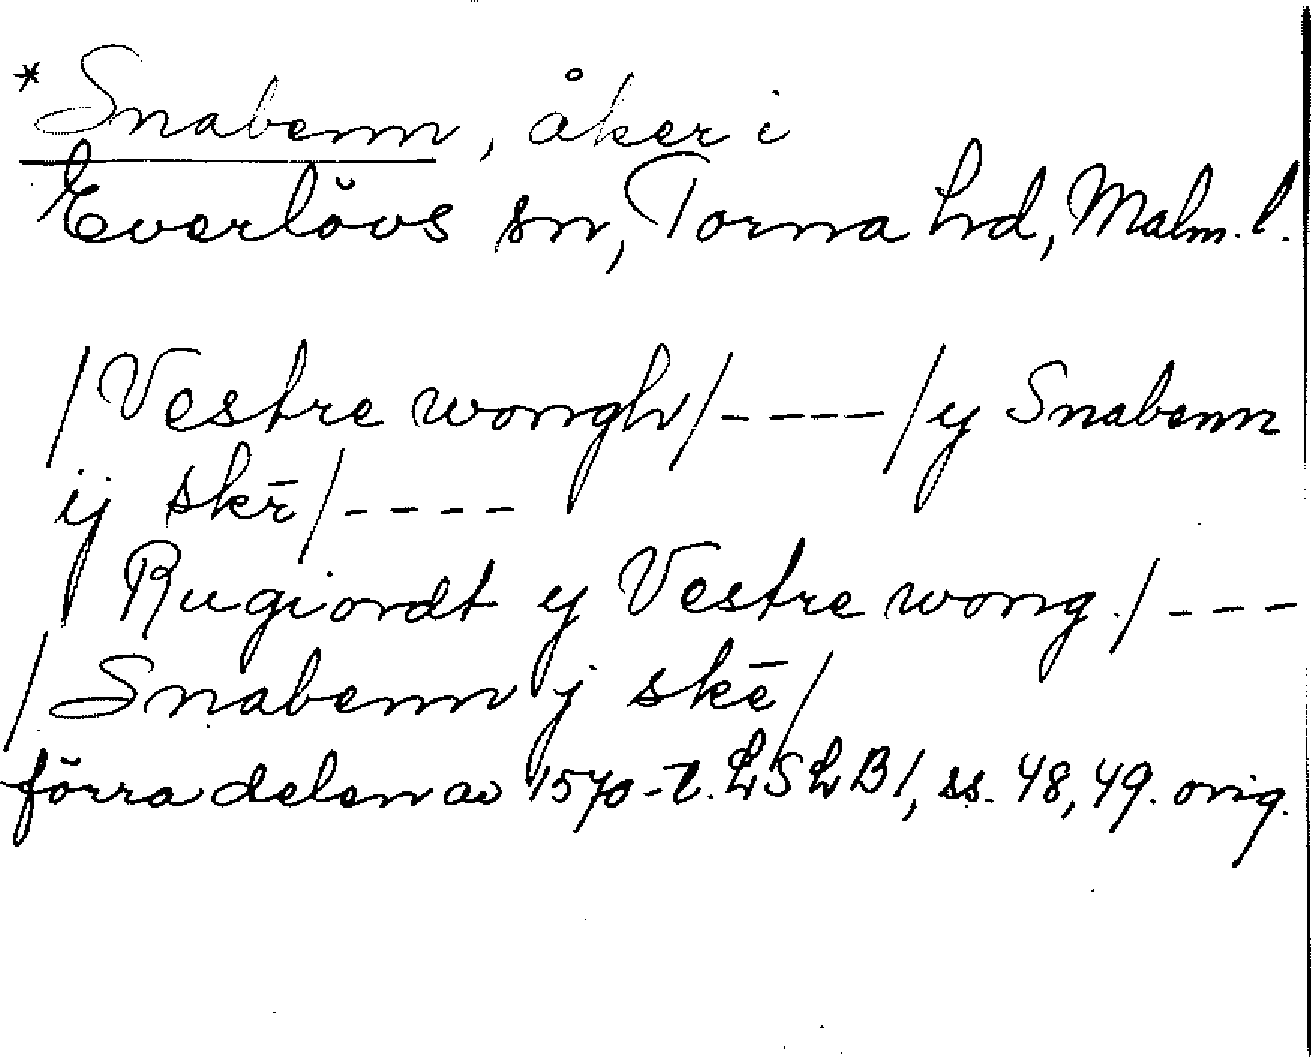 *Snabenn, åker i
Everlövs sn, Torna hd, Malm. l.
/Vestre wongh/----/y Snabenn
ij skē/----
Rugiordt y Vestre wong./---
/Snabenn j skē/
förra delen av 1570-t. LSLB1, ss. 48, 49. orig.